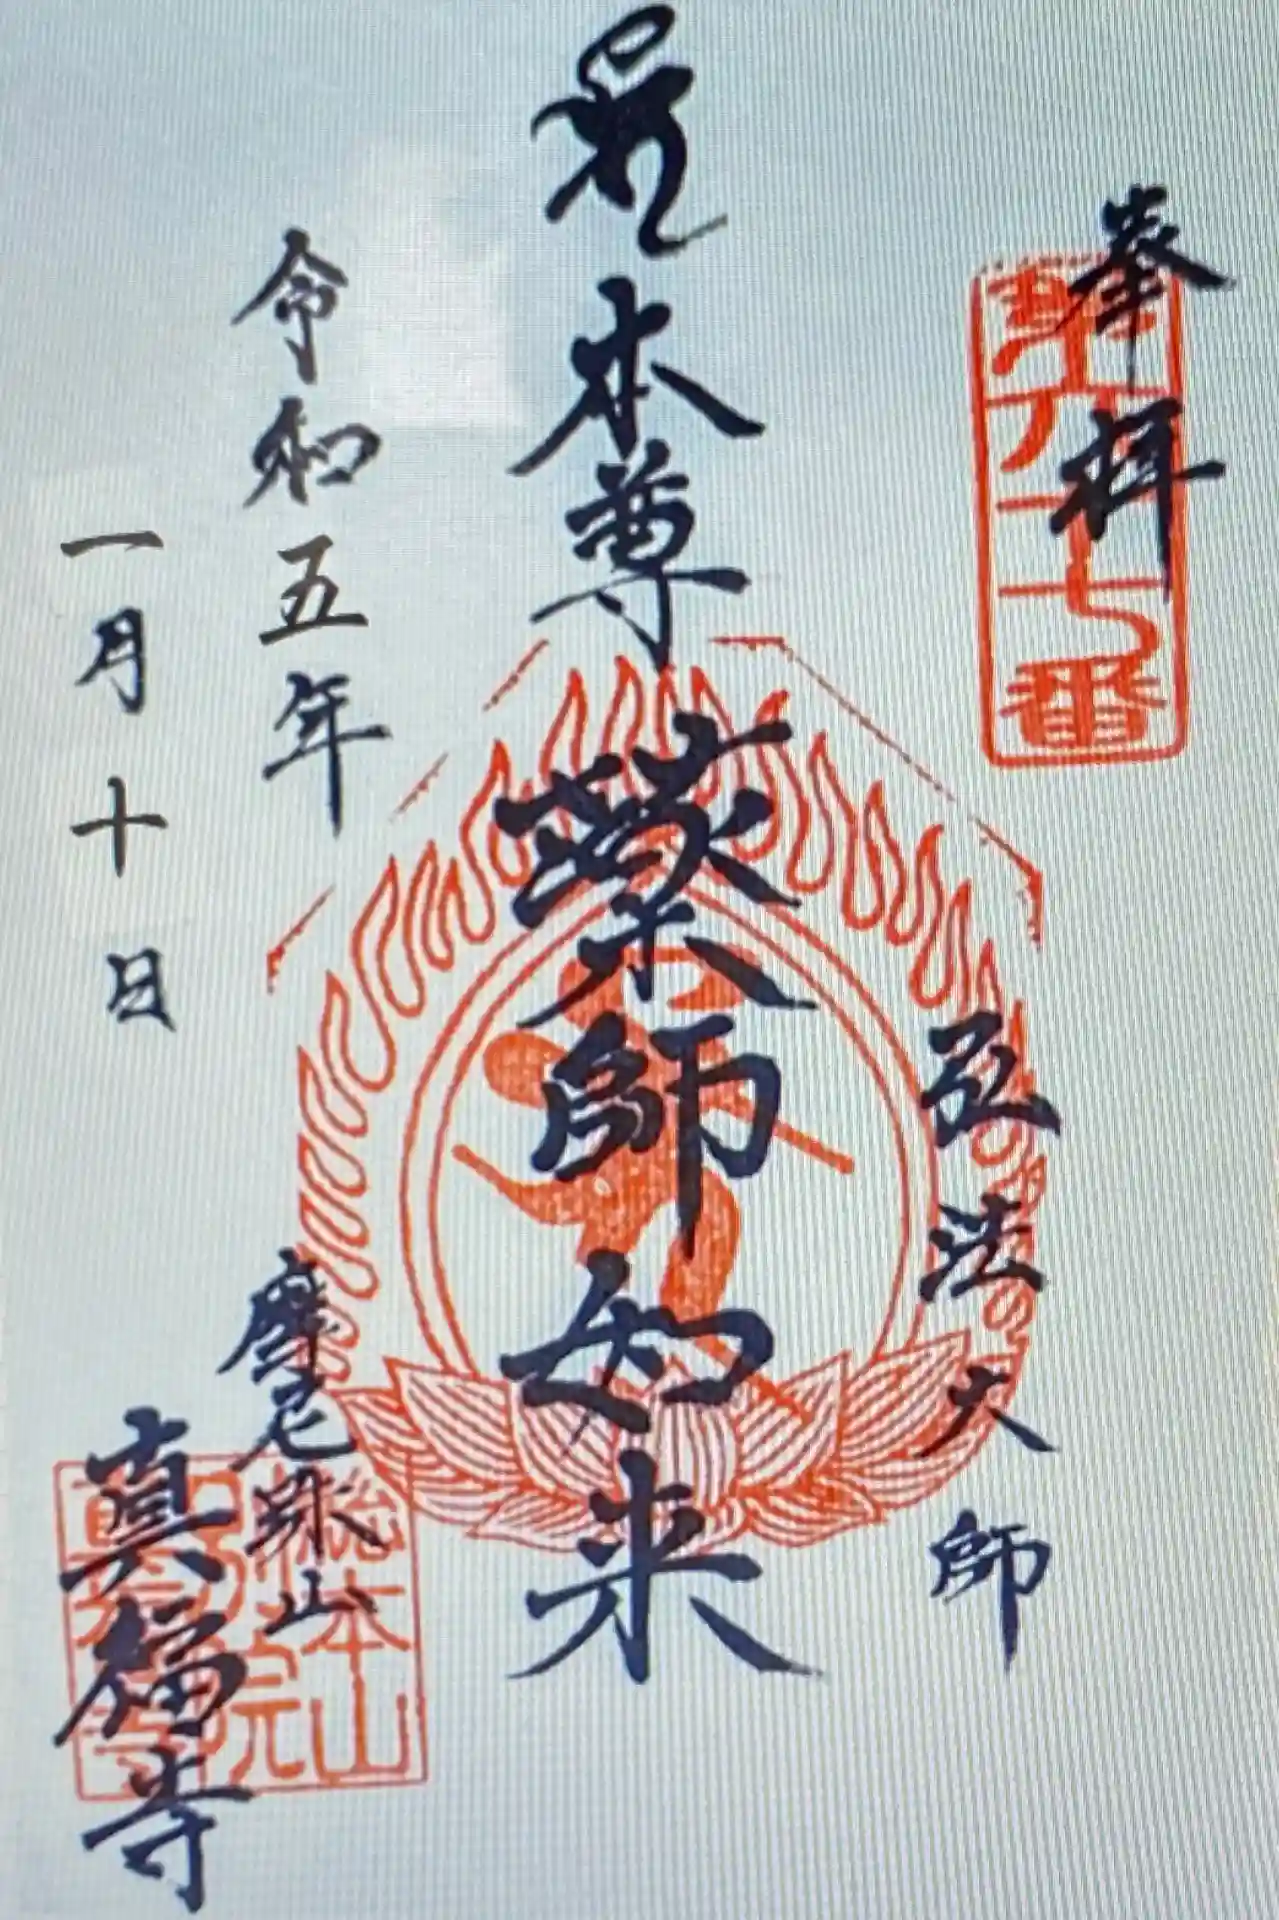 奉拝
第六十七番
弘法大師
本尊
薬師如来
令和五年
一月十日
摩尼珠山
真福寺